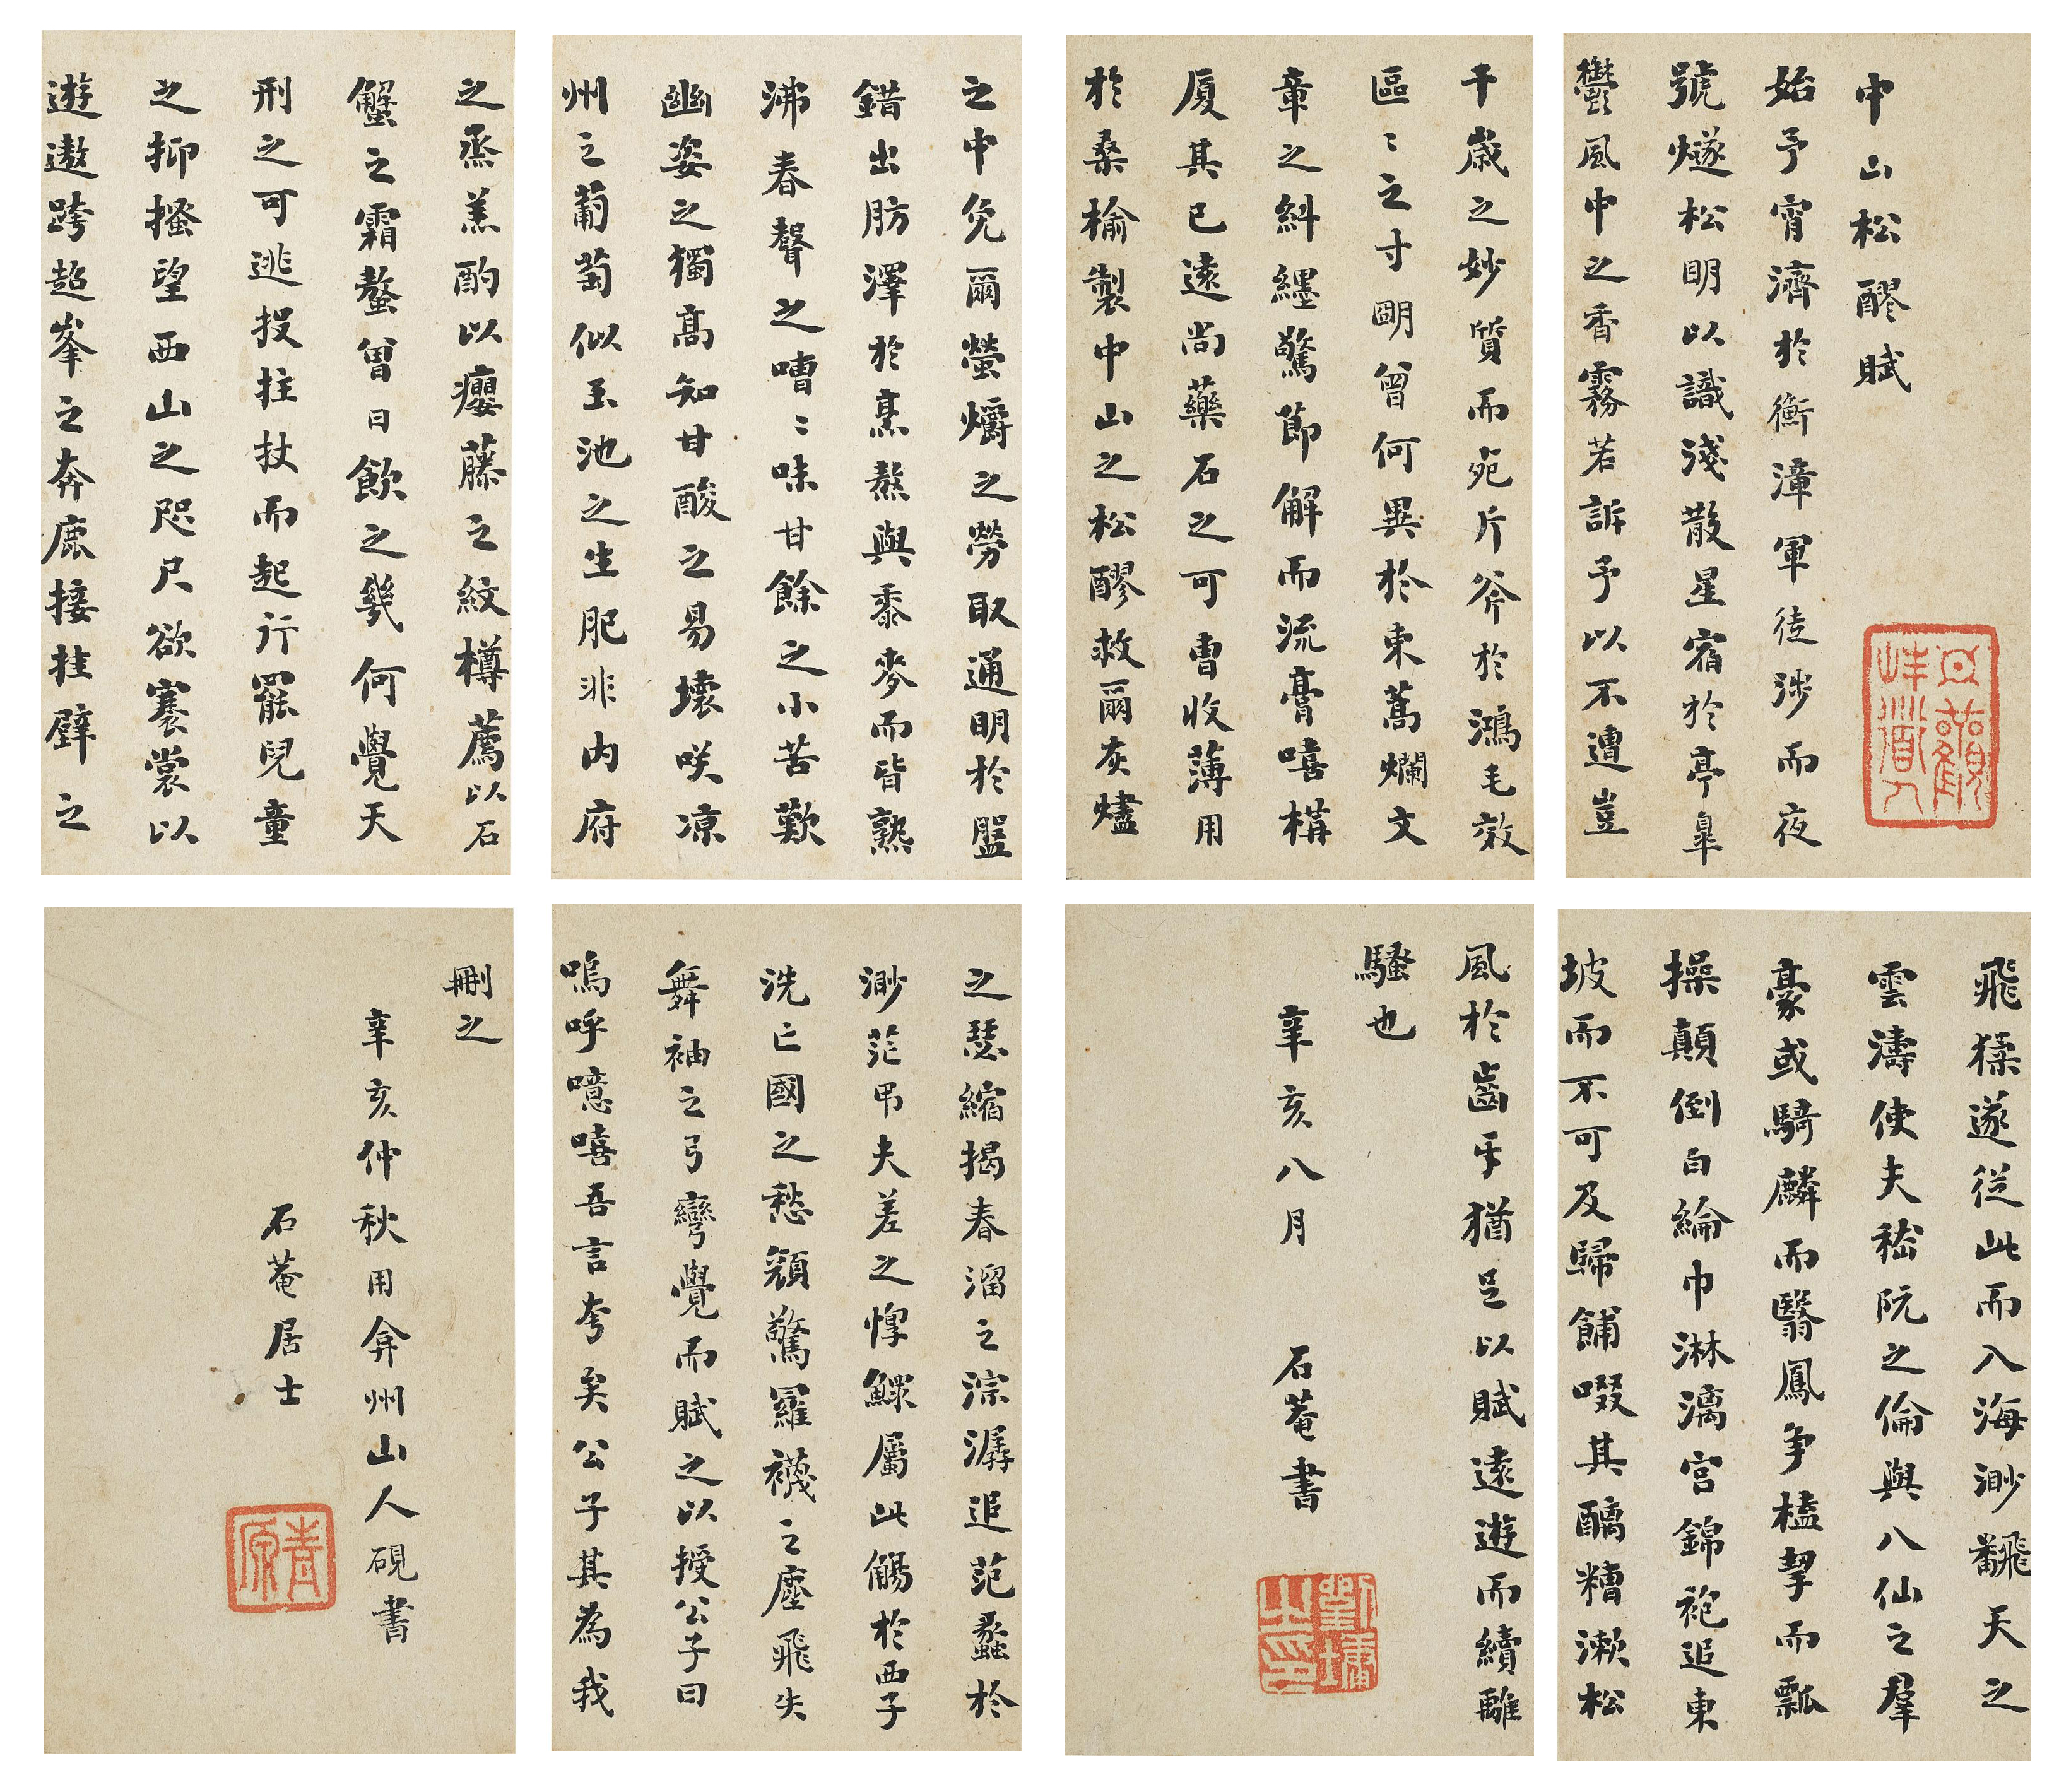 中山松醪賦
始予宵濟於衡漳軍徒涉而夜
號燧松明以識淺散星宿於亭皋
鬱風中之香霧若訴予以不遭豈
千歲之妙質而死斤斧於鴻毛效
區〻之寸明曾何異於束蒿爛文
章之糾纆驚節解而流膏嘻構
厦其已遠尚藥石之可曹收薄用
於桑榆製中山之松醪救爾灰燼
之中免爾螢爝之勞取通明於盤
錯出肪澤於烹熬與黍麥而皆熟
沸舂聲之嘈〻味甘餘之小苦歎
幽姿之獨高知甘酸之易壞咲涼
州之葡萄似玉池之生肥非内府
之烝羔酌以癭藤之紋樽薦以石
蟹之霜螯曾日飲之幾何覺天
刑之可逃投拄杖而起行罷兒童
之抑搔望西山之咫尺欲褰裳以
遊遨跨超峯之奔鹿接挂壁之
飛猱遂從此而入海渺飜天之
雲濤使夫嵇阮之倫與八仙之羣
豪或騎麟而翳鳳爭榼挈而瓢
操顛倒白綸巾淋漓宮錦袍追東
坡而不可及歸餔啜其醨糟漱松
風於齒牙猶足以賦遠遊而續離
騷也
辛亥八月 石菴書
劉墉之印
之瑟縮揭春溜之淙潺追范蠡於
渺茫弔夫差之惸鰥屬此觴於西子
洗亡國之愁顏驚羅襪之塵飛失
舞袖之弓彎覺而賦之以授公子曰
嗚呼噫嘻吾言夸矣公子其為我
刪之
辛亥仲秋用弇州山人硯書
石菴居士
青原